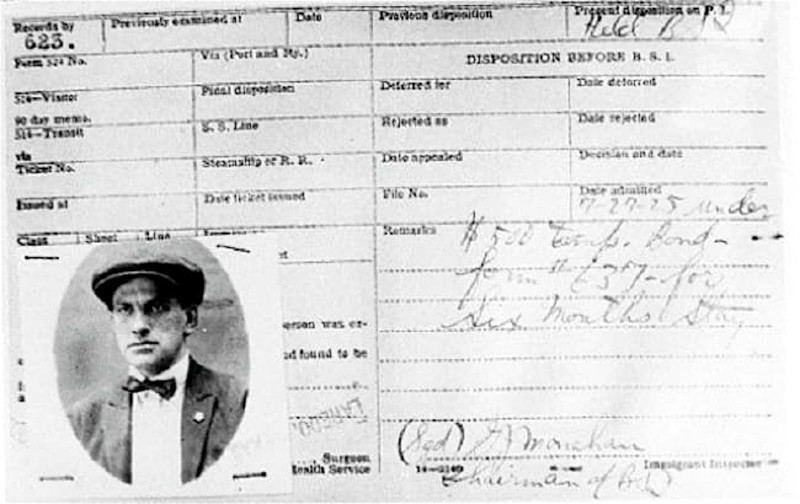 Records by
623.
Previously examined at
Date
Previous disposition
Present disposition on P. I.
Held B
Form 524 No.
Via (Port and Ry.)
DISPOSITION BEFORE B. S. I.
Final disposition
Deferred for
Date deferred
90 day memo.
S. S. Line
Rejected as
Date rejected
via
Ticket No.
Steamship or R. R.
Date appealed
Decision and date
Issued at
Date ticket issued
File No.
Date admitted
7-27-25 under
Class Sheet Line
Remarks
$500 Temp. Bond-
form
for
Six Months Stay
erson was ex-
d found to be
LAREDO
(Sgd) Monahan
Surgeon
ealth Service
Immigrant Inspector
Chairman of